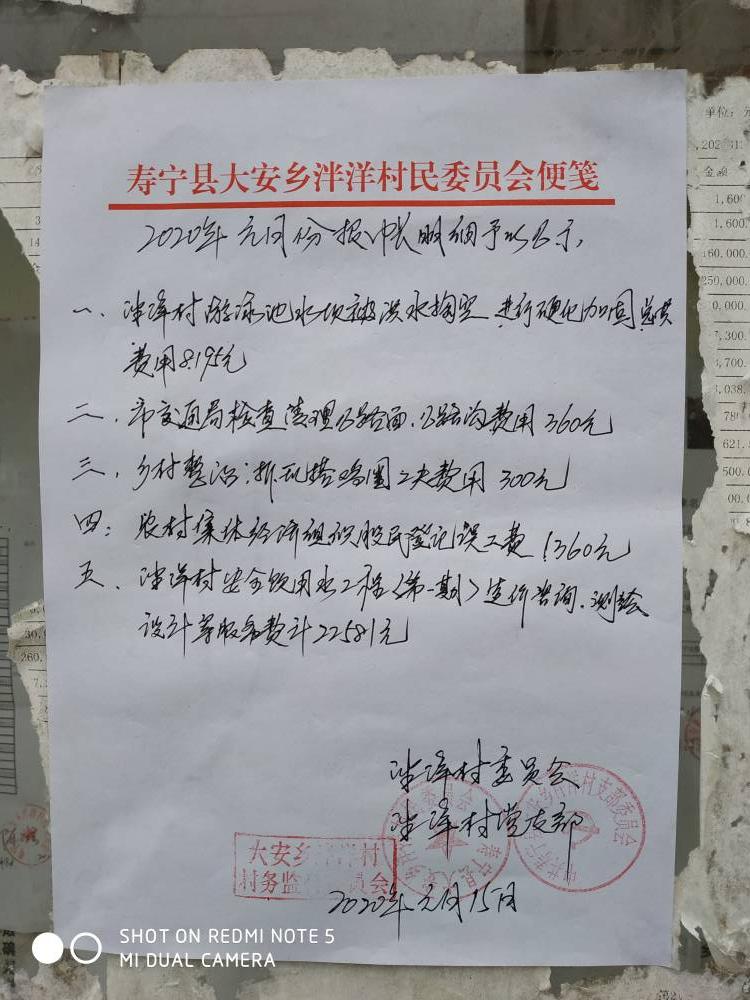 寿宁县大安乡泮洋村民委员会便笺
2020年元月份报帐明细予以公示,
一、泮洋村游泳池水坝被洪水掏空 进行硬化加固总共
费用8195元
二、市交通局检查清理公路面、公路沟费用360元
三、乡村整治:拆瓦搭鸡圈2天费用300元
四:农村集体经济组织股民登记误工费1360元
五、泮洋村安全饮用水工程〈第一期〉造价咨询、测绘
设计等服务费计22581元
泮洋村委员会
泮洋村党支部
大安乡泮洋村
村务监督委员会
2020年元月15日
单位:
金额
1,600
160.000.
250,000.
0,000.
7,300.
4,700.
3,038.
621.
500.00
30,
260.
SHOT ON REDMI NOTE 5
MI DUAL CAMERA